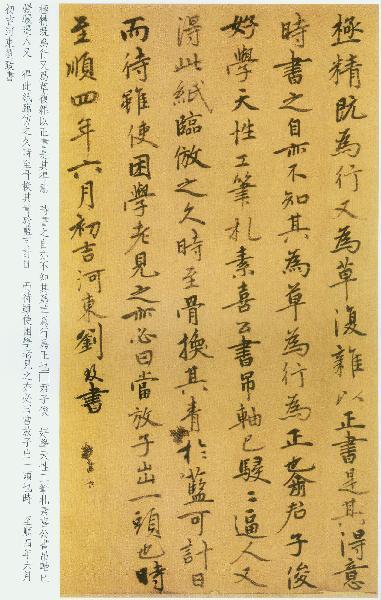 極精既為行又為草復雜以正書是其得意
時書之自亦不知其為草為行為正也君子俊
好學天性工筆札素喜公書吊軸已駸〻逼人又
得此紙臨倣之久時至骨換其青於藍可計日
而待雖使困學老見之亦必曰當放子出一頭也時
至順四年六月初吉河東劉致書
極精既為行又為草復雜以正書是其得意 時書之自亦不知其為草為行為正也□君子俊 好學天性工筆札素喜公書吊軸已
駸駸逼人又 得此紙臨倣之久時至骨換其青於藍可計日 而待雖使困學老見之亦必曰當放子出一頭也時 至順四年六月
初吉河東劉致書